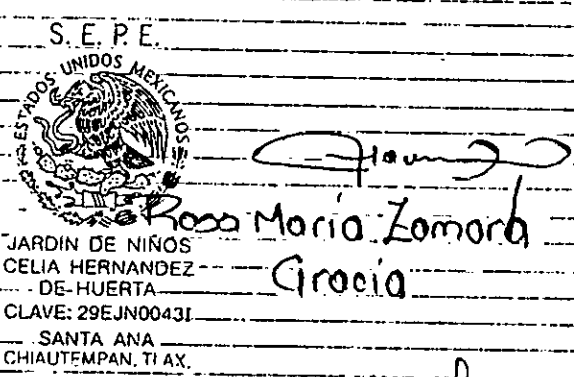 S. E. P. E.
ESTADOS UNIDOS MEXICANOS
Rosa María Zamora
Gracia
JARDIN DE NIÑOS
CELIA HERNANDEZ
DE HUERTA
CLAVE: 29EJN0043I
SANTA ANA
CHIAUTEMPAN, TLAX.